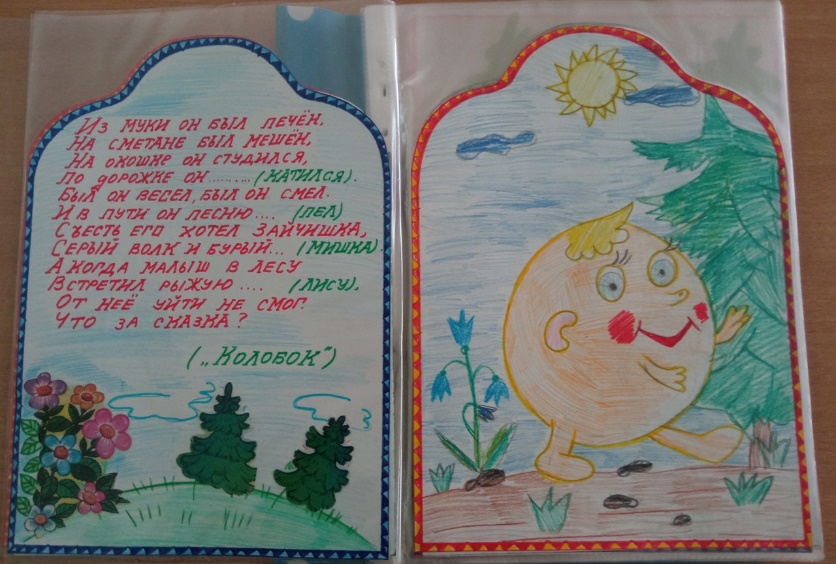 Из муки он был печён,
На сметане был мешён,
На окошке он студился,
По дорожке он......... (катился).
Был он весел, был он смел.
И в пути он песню.... (пел)
Съесть его хотел зайчишка,
Серый волк и бурый... (мишка).
А когда малыш в лесу
Встретил рыжую .... (лису).
От неё уйти не смог.
Что за сказка?
(„Колобок“)